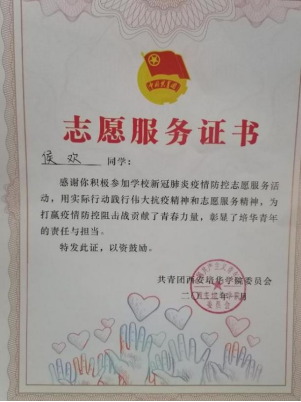 志愿服务证书
侯欢 同学：
感谢你积极参加学校新冠肺炎疫情防控志愿服务活
动，用实际行动践行伟大抗疫精神和志愿服务精神，为
打赢疫情防控阻击战贡献了青春力量，彰显了培华青年
的责任与担当。
特发此证，以资鼓励。
共青团西安培华学院委员会